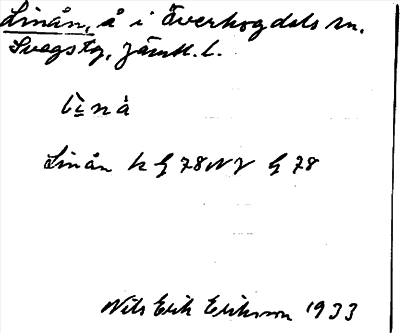 Linån, å i Överhogdals sn.
Svegs tg, Jämtl. l.
Linån k G 78 NV G 78
Nils Erik Eriksson 1933